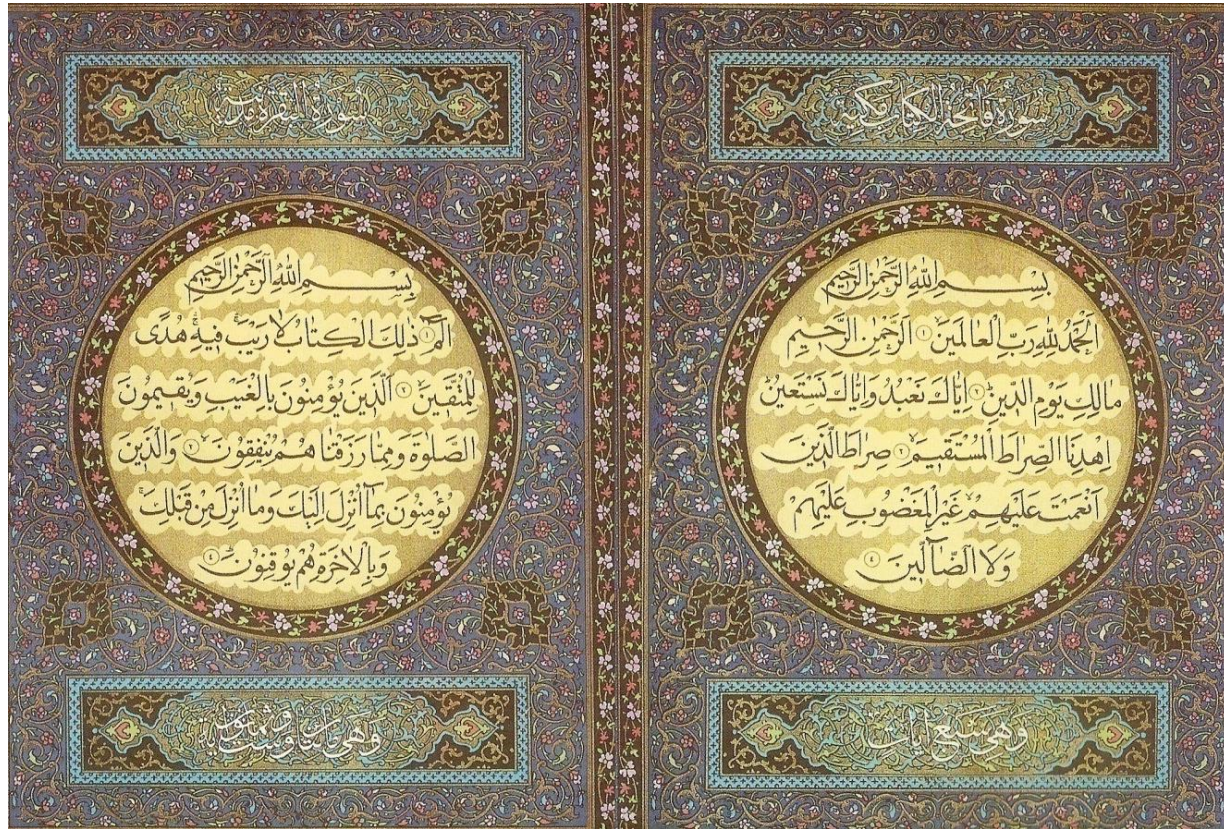 سورة فاتحة الكتاب مكية
بِسْمِ اللّٰهِ الرَّحْمٰنِ الرَّحِيمِ
اَلْحَمْدُ لِلّٰهِ رَبِّ الْعَالَمِينَ ١ اَلرَّحْمٰنِ الرَّحِيمِ
مَالِكِ يَوْمِ الدِّينِ ٢ اِيَّاكَ نَعْبُدُ وَاِيَّاكَ نَسْتَعِينُ
اِهْدِنَا الصِّرَاطَ الْمُسْتَقِيمَ ٣ صِرَاطَ الَّذِينَ
اَنْعَمْتَ عَلَيْهِمْ غَيْرِ الْمَغْضُوبِ عَلَيْهِمْ
وَلَا الضَّٓالِّينَ ٤
وهي سبع ايات
سورة البقرة مدنية
بِسْمِ اللّٰهِ الرَّحْمٰنِ الرَّحِيمِ
الٓمٓ ١ ذٰلِكَ الْكِتَابُ لَا رَيْبَ فِيهِ هُدًى
لِلْمُتَّقِينَ ٢ اَلَّذِينَ يُؤْمِنُونَ بِالْغَيْبِ وَيُقِيمُونَ
الصَّلٰوةَ وَمِمَّا رَزَقْنَاهُمْ يُنْفِقُونَ ٣ وَالَّذِينَ
يُؤْمِنُونَ بِمَٓا اُنْزِلَ اِلَيْكَ وَمَٓا اُنْزِلَ مِنْ قَبْلِكَ
وَبِالْاٰخِرَةِ هُمْ يُوقِنُونَ ٤
وهي مائتان وست وثمانون